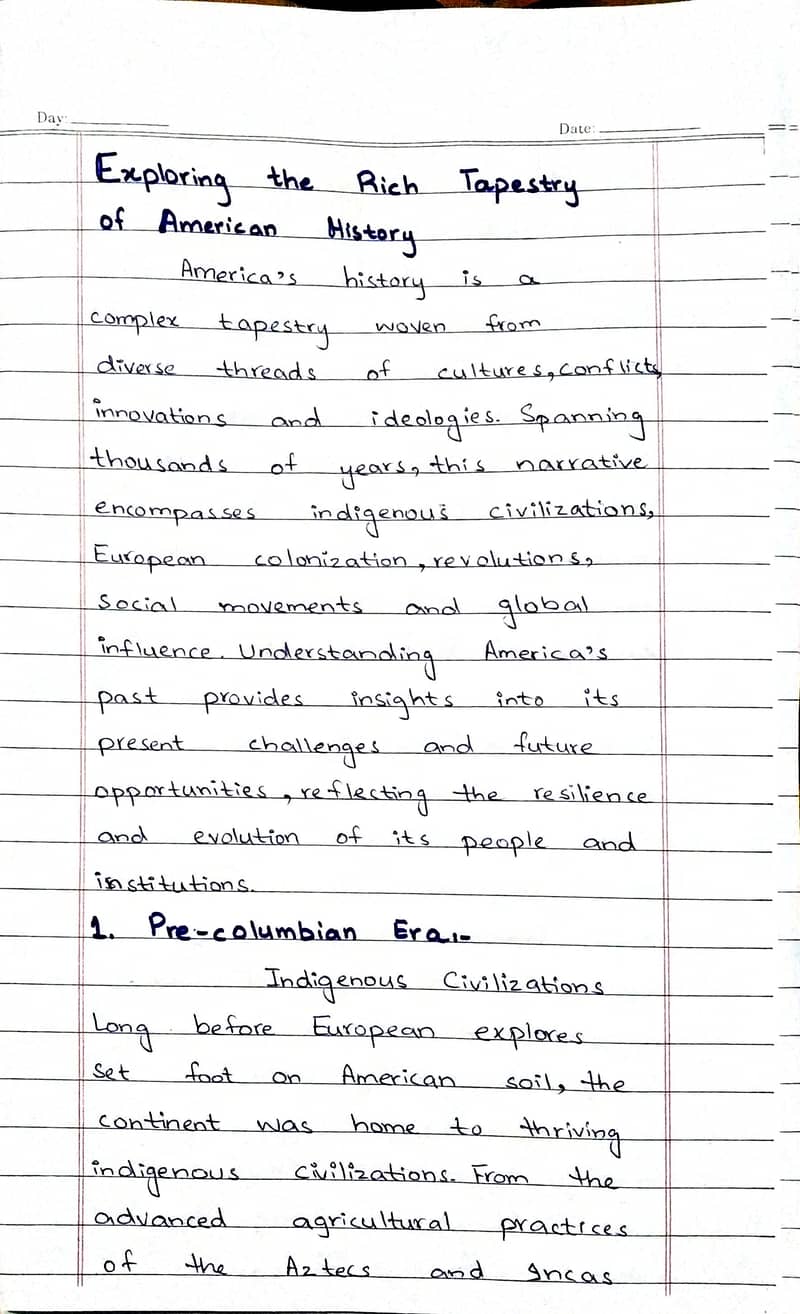 Day:
Date:
Exploring the Rich Tapestry
of American History
America's history is a
complex tapestry woven from
diverse threads of cultures, conflicts,
innovations and ideologies. Spanning
thousands of years, this narrative
encompasses indigenous civilizations,
European colonization, revolutions,
social movements and global
influence. Understanding America's
past provides insights into its
present challenges and future
opportunities, reflecting the resilience
and evolution of its people and
institutions.
1. Pre-columbian Era:-
Indigenous Civilizations
Long before European explores
set foot on American soil, the
continent was home to thriving
indigenous civilizations. From the
advanced agricultural practices
of the Aztecs and Incas